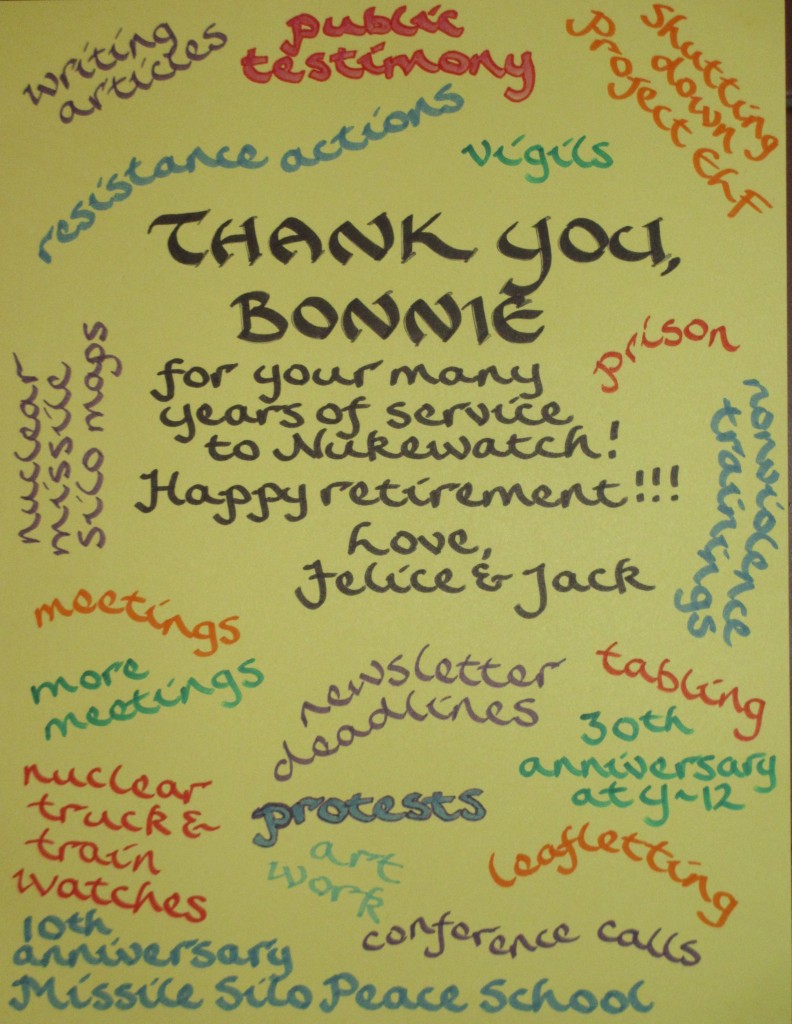 writing
articles
public
testimony
shutting
down
Project ELF
resistance actions
vigils
THANK YOU,
BONNIE
for your many
years of service
to Nukewatch!
Happy retirement!!!
Love,
Felice & Jack
prison
nuclear
missile
silo maps
nonviolence
trainings
meetings
more
meetings
newsletter
deadlines
tabling
30th
anniversary
at Y-12
nuclear
truck &
train
watches
protests
art
work
leafletting
conference calls
10th
anniversary
Missile Silo Peace School